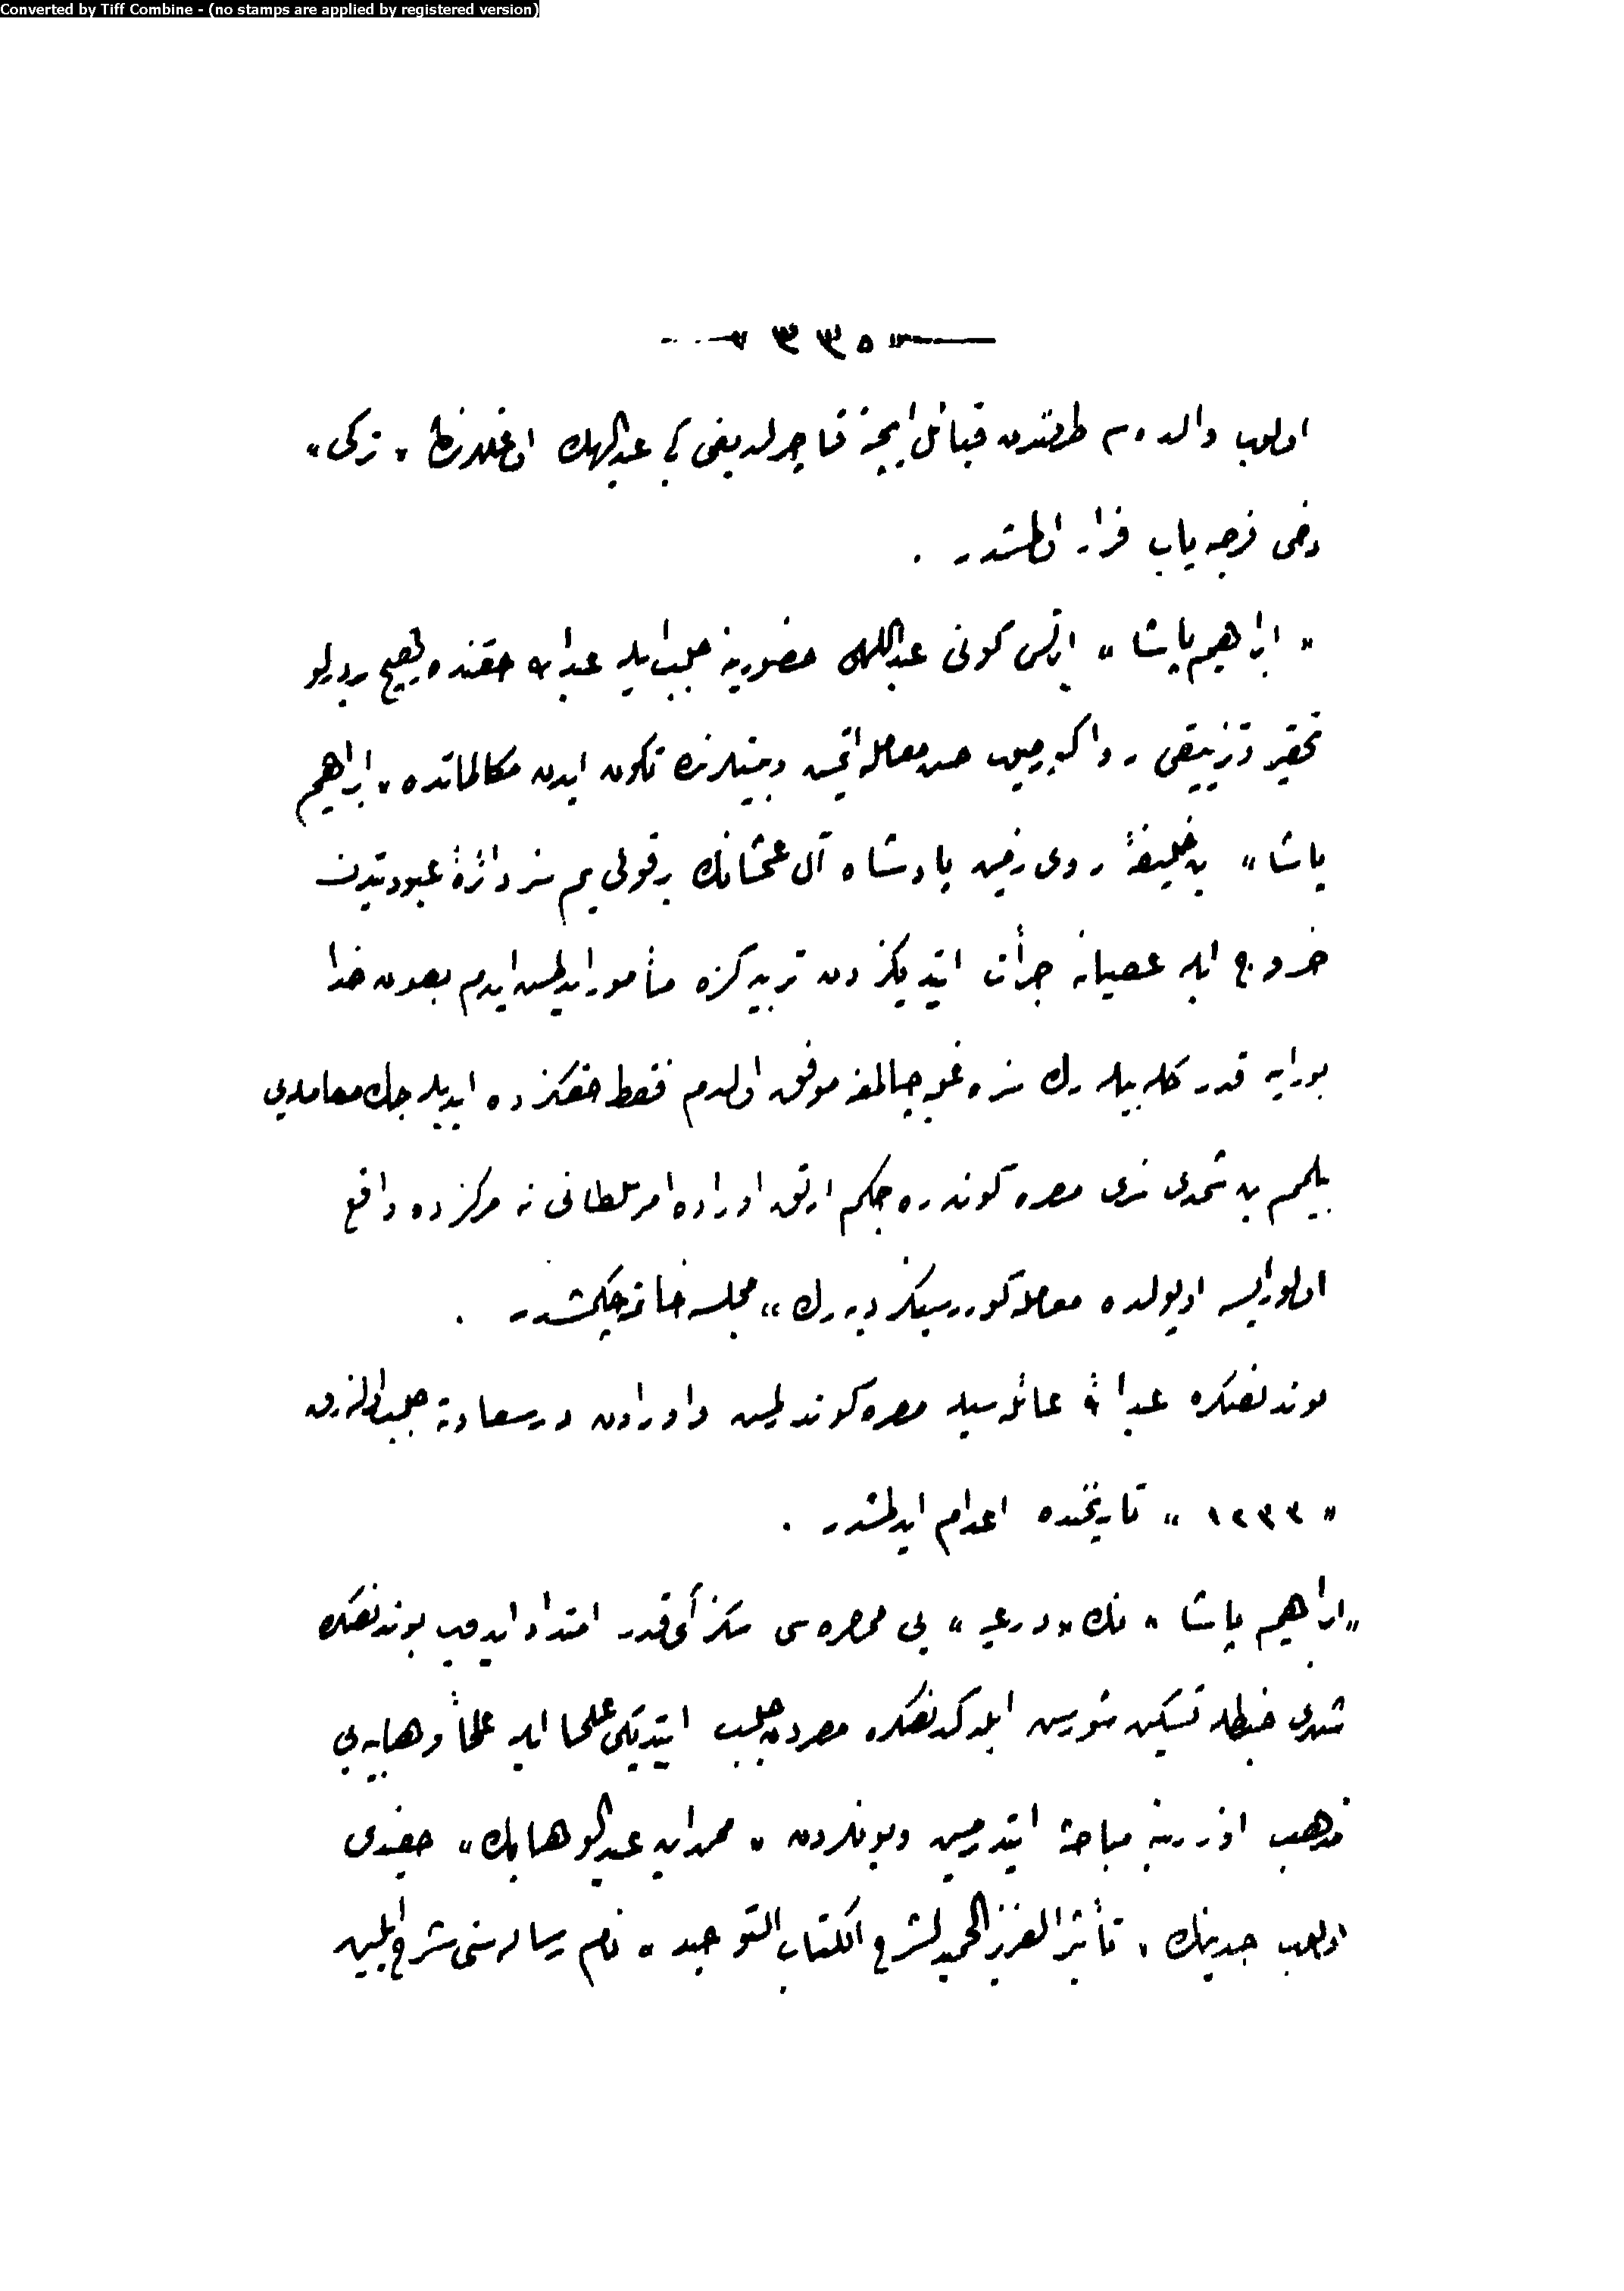 Converted by Tiff Combine - (no stamps are applied by registered version)
٣٣٥
اولوب والده سی طرفندن قبائل ایچنه قاچرلدیغی کبی عبداللهك اوغللرندن « ترکی »
دخی فرجه یاب فرار اولمشدر .
« ابراهیم پاشا » ایرتسی کونی عبداللهی حضورینه جلب ایله عبدالله حقنده هیچ بر درلو
تحقیر و تزییفی روا کورمیوب حسن معامله ایتمش وبینلرنده تکون ایدن مکالماتده « ابراهیم
پاشا » بن خلیفهٔ روی زمین پادشاه آل عثمانك بر قولی یم سز دائرهٔ عبودیتدن
خروج ایله عصیانه جرأت ایتدیکزدن تربیه کزه مأمور ایدلمش ایدم بعون خدا
بورایه قدر کله بیله رك سزه غلبه چالمغه موفق اولدم فقط حقکزده ایدیله جك معامله یی
بیلمم بن شمدی سزی مصره کوندره جکم ارتق اوراده امر سلطانی نه مرکزده واقع
اولور ایسه او یولده معامله کوررسیکز دیه رك » مجلسه خاتمه چکمشدر .
بوندنصکره عبدالله عائله سیله مصره کوندرلمش واورادن درسعادته جلب اولنه رق
« ١٢٣٣ » تاریخنده اعدام ایدلمشدر .
« ابراهیم پاشا » نك « درعیه » یی محاصره سی سکز آی قدر امتداد ایدوب بوندنصکره
شهری ضبطله تسکین شورش ایلدکدنصکره مصردن جلب ایتدیکی علما ایله علمای وهابیه یی
مذهب اوزرینه مباحثه ایتدیرمش وبونلردن « محمد ابن عبدالوهابك » حفیدی
اولوب جدینك « تأثیر العزیز الحمید لشرح الکتاب التوحید » نام رساله سنی شرح ایلیین